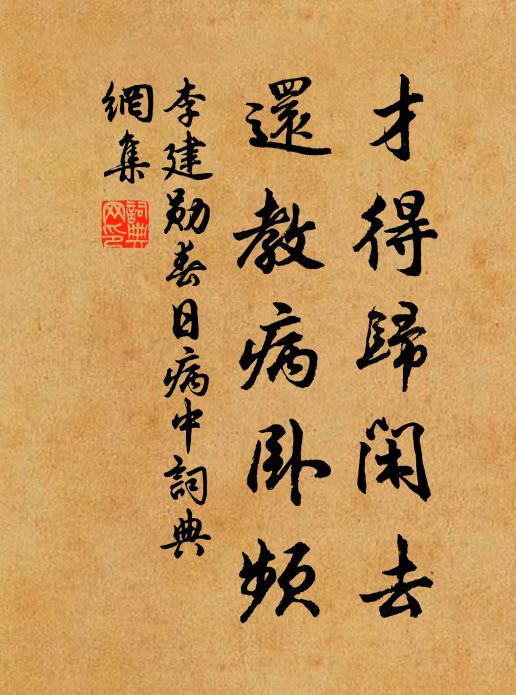 才得歸閑去
還教病臥頻
李建勛春日病中詞典
網集
詞典
网印